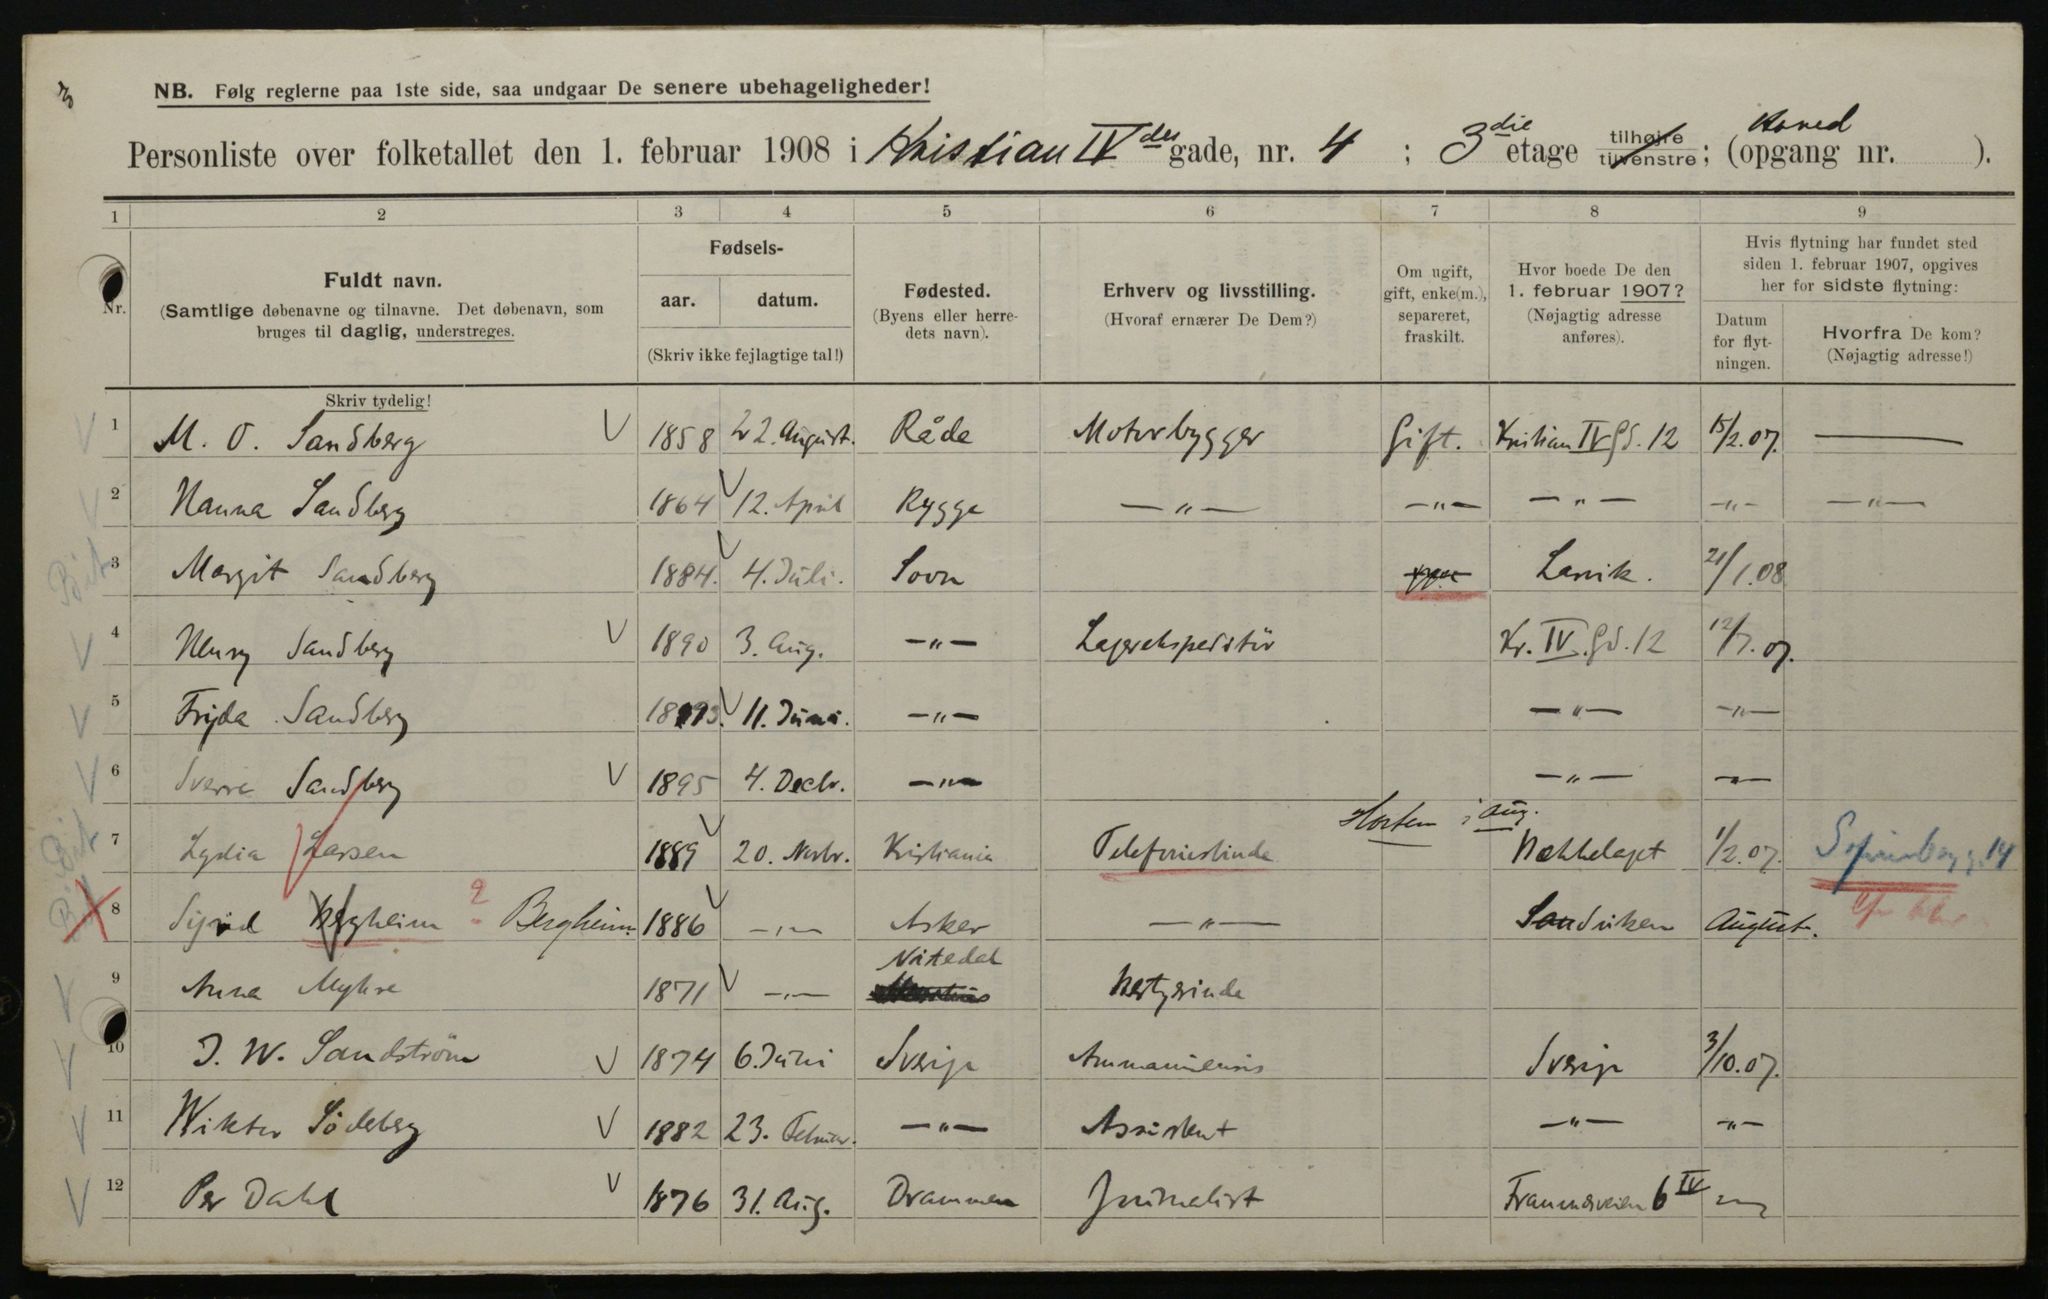 3
NB. Følg reglerne paa 1ste side, saa undgaar De senere ubehageligheder!
Personliste over folketallet den 1. februar 1908 i Kristian IV des gade, nr. 4 ; 3die etage tilhøjre tilvenstre ; (opgang nr. Hoved ).
1 2 3 4 5 6 7 8 9
Nr.
Fuldt navn.
(Samtlige døbenavne og tilnavne. Det døbenavn, som
bruges til daglig, understreges.
Skriv tydelig!
Fødsels-
aar. datum.
(Skriv ikke fejlagtige tal!)
Fødested.
(Byens eller herre-
dets navn).
Erhverv og livsstilling.
(Hvoraf ernærer De Dem?)
Om ugift,
gift, enke(m.),
separeret,
fraskilt.
Hvor boede De den
1. februar 1907?
(Nøjagtig adresse
anføres).
Hvis flytning har fundet sted
siden 1. februar 1907, opgives
her for sidste flytning:
Datum
for flyt-
ningen.
Hvorfra De kom?
(Nøjagtig adresse!)
1 M. O. Sandberg V 1858 22. August. Råde Motorbygger Gift. Kristian IV Gd. 12 15/2.07. —
2 Hanna Sandberg 1864 V 12. April Rygge —„— —„— —„— —„— —„—
3 Margit Sandberg 1884. V 4. Juli. Soon Larvik. 21/1.08
4 Henry Sandberg V 1890 3. Aug. —„— Lagerekspeditör Kr. IV. Gd. 12 12/7.07.
5 Frijda Sandberg 1893. V 11. Juni. —„— —„— —„—
6 Sverre Sandberg V 1895 4. Decbr. —„— —„— —„—
Horten i Aug.
7 Lydia Larsen 1889 V 20. Novbr. Kristiania Telefonistinde Bækkelaget 1/2.07. 14
8 Sigrid Bergheim ? Bergheim 1886 V —„— Asker —„— Sandviken August.
Nitedal
9 Anna Myhre 1871 V —„— Bestyrinde
10 J. W. Sandström V 1874 6. Juni Sverige Ammanuensis Sverige 3/10.07.
11 Wiktor Södeberg V 1882 23. Februar. —„— Assistent —„— —„—
12 Per Dahl V 1876 31. Aug. Drammen Journalist Frammesveien 6 IV —„—